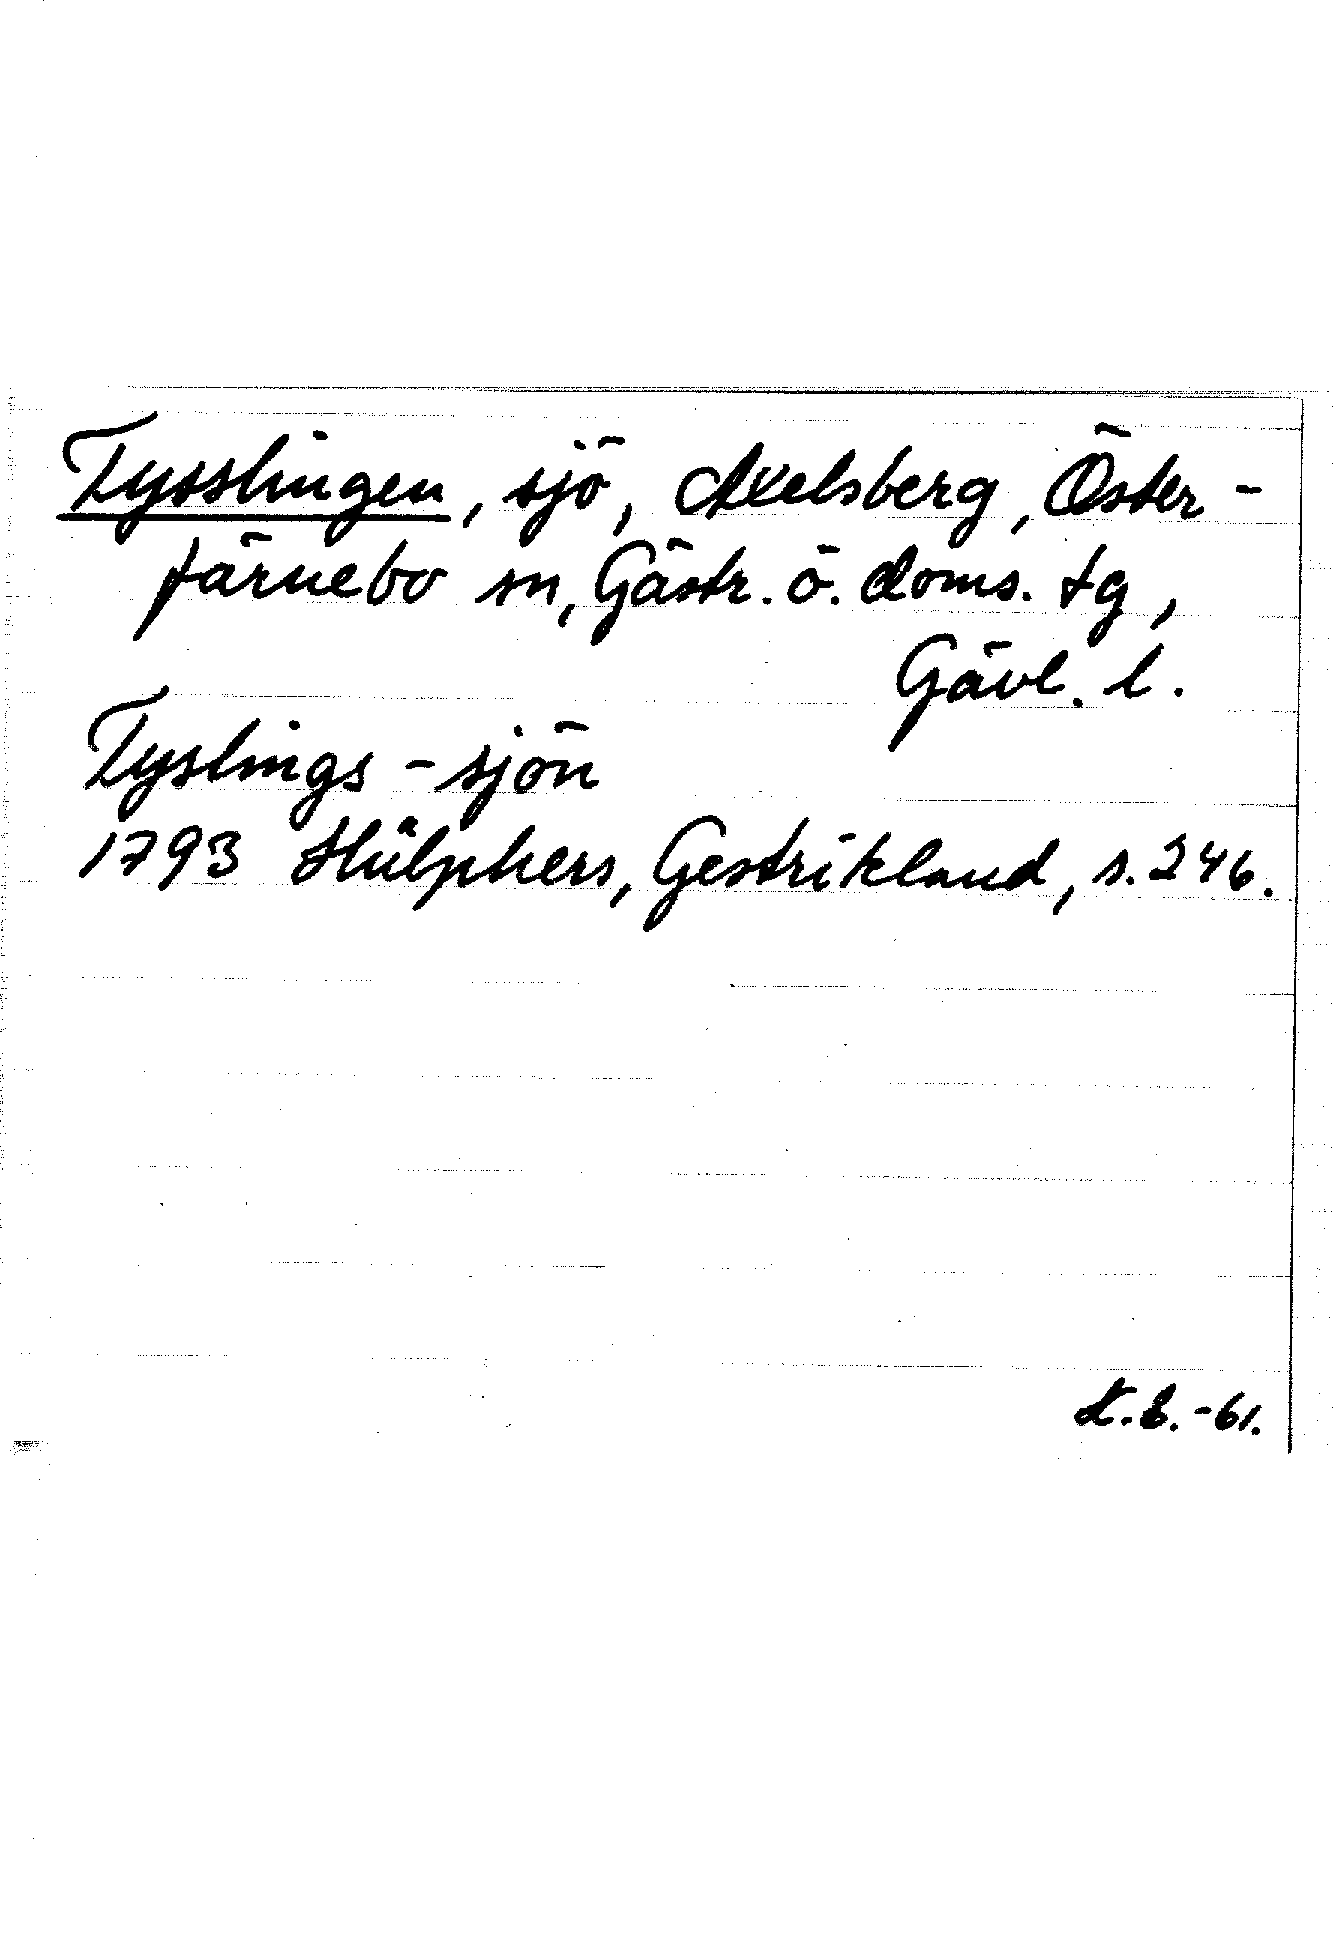 Tysslingen, sjö, Axelsberg, Öster-
färnebo sn, Gästr. ö. doms. tg,
Gävl. l.
Tyslings-sjön
1793 Hülphers, Gestrikland, s. 246.
K.E. -61.